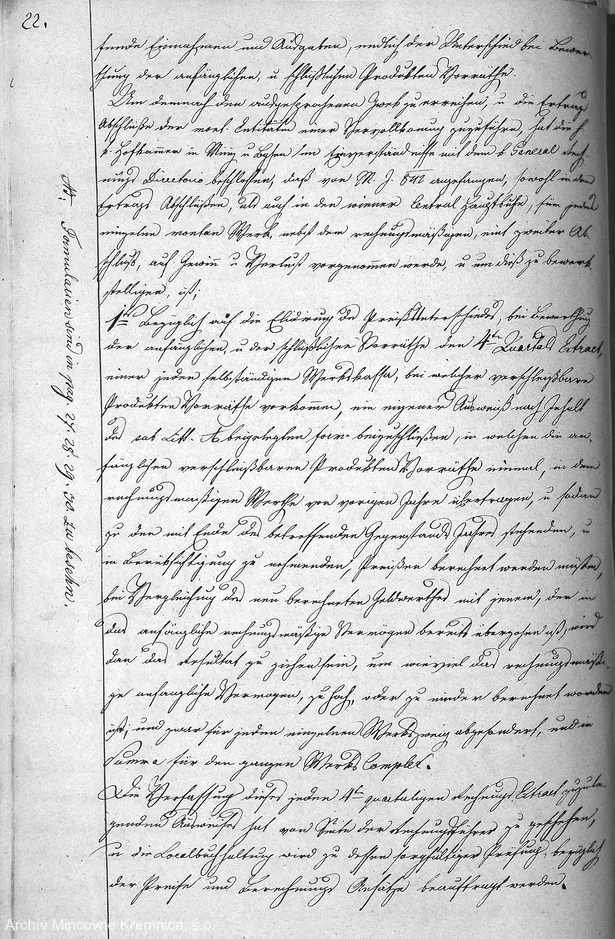 22.
fende Einnahmen und Ausgaben, endlich der Unterschied bei Bewer-
thung der anfänglichen, u schlüßlichen Produkten Vorräthe.
Um demnach den ausgesprochenen Zweck zu erreichen, u die Ertrags
Abschlüße der mont. Entitäten einer Vervollkommnung zuzuführen, hat die k.
k Hofkammer in Münz u Bgsen im Einverständniße mit dem k General Rech-
nungs Directorio beschlossen, daß vom M. J. 842 angefangen, sowohl in den
Ertrags Abschlüßen, als auch in den wiener Central Hauptbuche, für jedes
einzelne montan Werk, nebst dem rechnungsmäßigen, ein zweiter Ab
schluß, auf Gewinn u Verlust vorgenommen werde, u um dieß zu bewerk
stelligen, ist,
1tens Bezüglich auf die Elidirung des Preißunterschiedes, bei Bewerthung
der anfänglichen, u der schlüßlichen Vorräthe den 4ten Quartals Extract,
einer jeden selbständigen Werkskassa, bei welcher verschleißbare
Produkten Vorräthe vorkommen, ein eigener Ausweiß nach Inhalt
des sub Litt. A beigelegten form. beizuschließen, in welchen die an-
fänglichen verschleißbaren Produkten Vorräthe einmal, in dem
rechnungsmäßigen Werthe vom vorigen Jahre übertragen, u sodan
zu den mit Ende des betreffenden Gegenstands Jahres stehenden, u
in Berüksichtigung zu nehmenden, Preißen berechnet werden müßen,
bei Vergleichung des neu berechneten Geldwerthes mit jenem, der in
das anfängliche rechnungsmäßige Vermögen bereits überzohen ist, wird
dan das Resultat zu ziehen sein, um wieviel das rechnungsmäßi-
ge anfängliche Vermögen, zu hoch, oder zu nieder berechnet worden
ist, und zwar für jeden einzelnen Werkszweig abgesondert, und in
Summa für den ganzen Werks Complex.
Die Verfassung dieses jeden 4ten quartaligen Rechnungs Extract zuzule-
genden Ausweises hat von Seite der Rechnungsführer zu geschehen,
u die Localbuchhaltung wird zu dessen sorgfältiger Prüfung, bezüglich
der Preise und Berechnungs Ansätze beauftragt werden.
Formularien sind in pag 27. 28. 29. 30. zu besehen.
Archív Mincovne Kremnica, š.p.